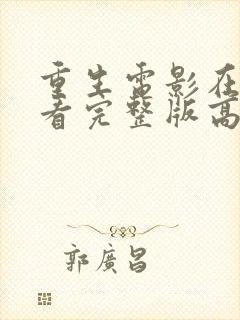 重生电影在
看完整版高
郭廣昌